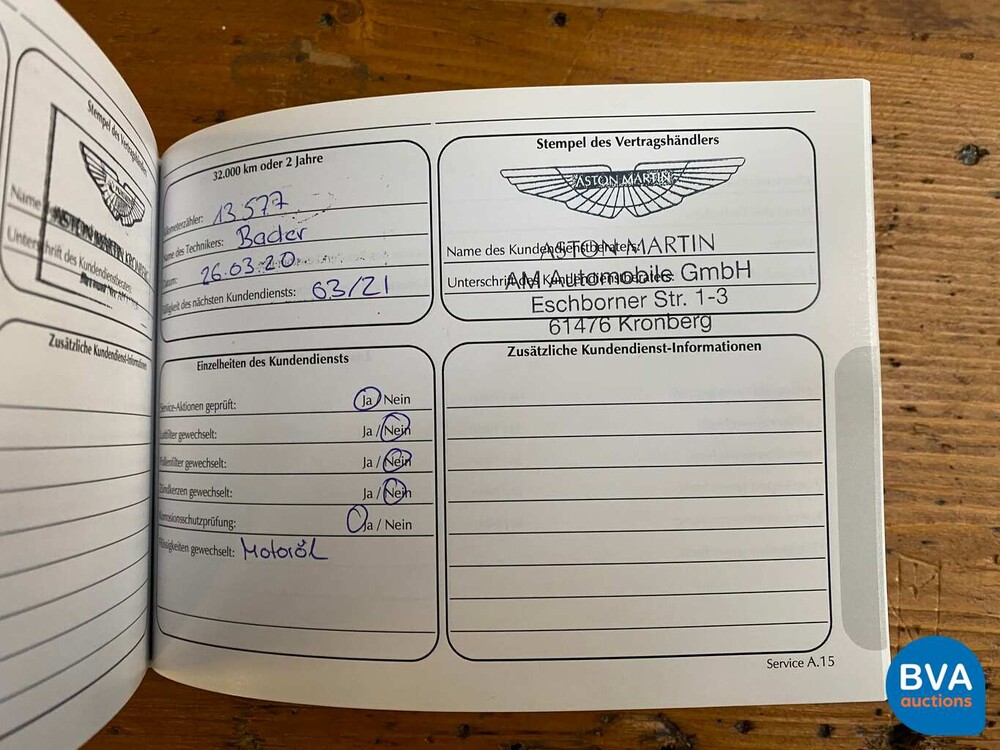 Stempel des Vertragshändlers
Name
ASTON MARTIN
Unterschrift des Kundendienstberaters:
Zusätzliche Kundendienst-Informationen
32.000 km oder 2 Jahre
Kilometerzähler: 13.577
Name des Technikers: Bader
Datum: 26.03.20
Fälligkeit des nächsten Kundendiensts: 03/21
Stempel des Vertragshändlers
ASTON MARTIN
Name des Kundendienstberaters:
ASTON MARTIN
Unterschrift des Kundendienstberaters:
AM Automobile GmbH
Eschborner Str. 1-3
61476 Kronberg
Einzelheiten des Kundendiensts
Service-Aktionen geprüft: Ja / Nein
Luftfilter gewechselt: Ja / Nein
Pollenfilter gewechselt: Ja / Nein
Zündkerzen gewechselt: Ja / Nein
Korrosionsschutzprüfung: Ja / Nein
Flüssigkeiten gewechselt: Motoröl
Zusätzliche Kundendienst-Informationen
Service A.15
BVA
auctions